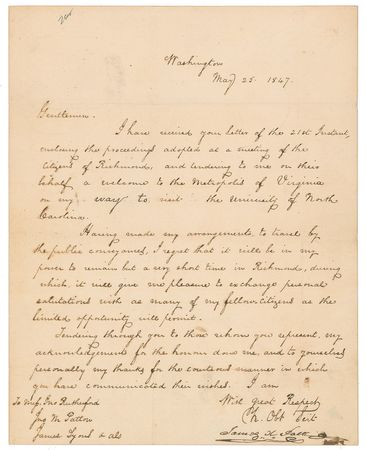 Washington
May 25. 1847.
Gentlemen.
I have received your letter of the 21st Instant,
enclosing the proceedings adopted at a meeting of the
citizens of Richmond, and tendering to me on their
behalf a welcome to the Metropolis of Virginia
on my way to visit the University of North
Carolina.
Having made my arrangements, to travel by
the public conveyances, I regret that it will be in my
power to remain but a very short time in Richmond, during
which, it will give me pleasure to exchange personal
salutations with as many of my fellow-citizens as the
limited opportunity will permit.
Tendering through you to those whom you represent, my
acknowledgements for the honour done me, and to yourselves
personally my thanks for the courteous manner in which
you have communicated their wishes. I am
With great Respect
Yr. Obt Svt
James K Polk
To Mssrs. Jno Rutherford
Jno M Patton
James Lyons & als